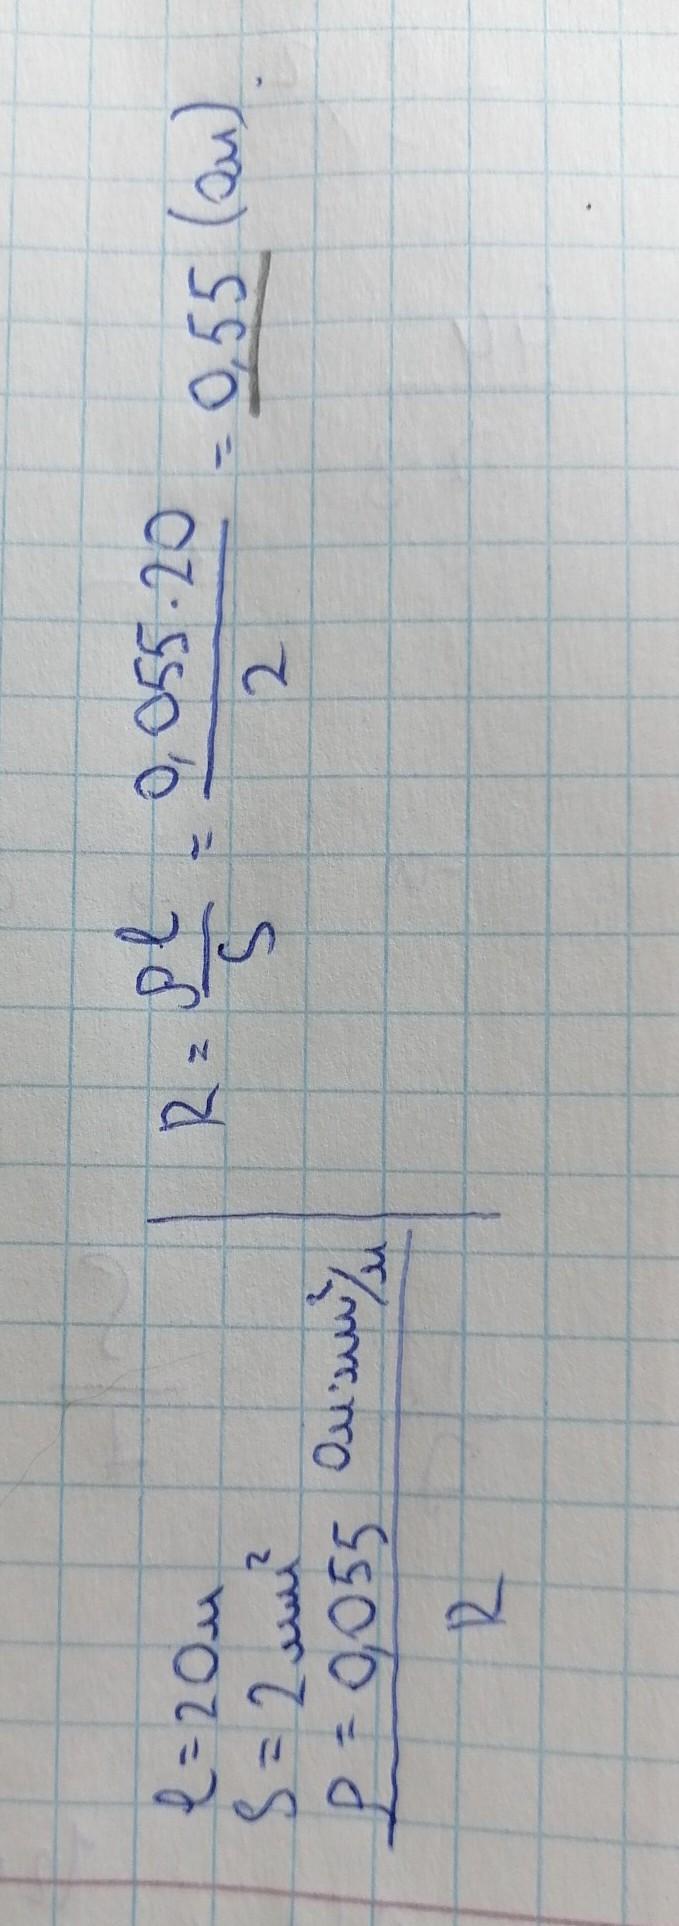 l = 20м
S = 2мм²
ρ = 0,055 Ом·мм²/м
R
R = ρl/S = 0,055·20/2 = 0,55 (Ом).